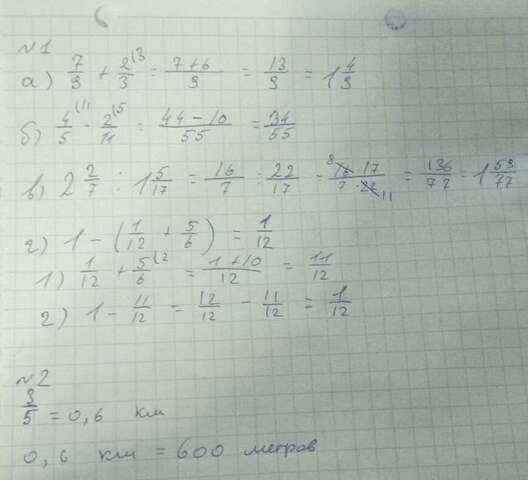 №1
а) 7/9 + 2/3 (3 = 7+6/9 = 13/9 = 1 4/9
б) 4/5 (11 - 2/11 (5 = 44-10/55 = 34/55
в) 2 2/7 : 1 5/17 = 16/7 : 22/17 = 8 16·17/7·22 11 = 136/77 = 1 59/77
г) 1 - (1/12 + 5/6) = 1/12
1) 1/12 + 5/6 (2 = 1+10/12 = 11/12
2) 1 - 11/12 = 12/12 - 11/12 = 1/12
№2
3/5 = 0,6 км
0,6 км = 600 метров